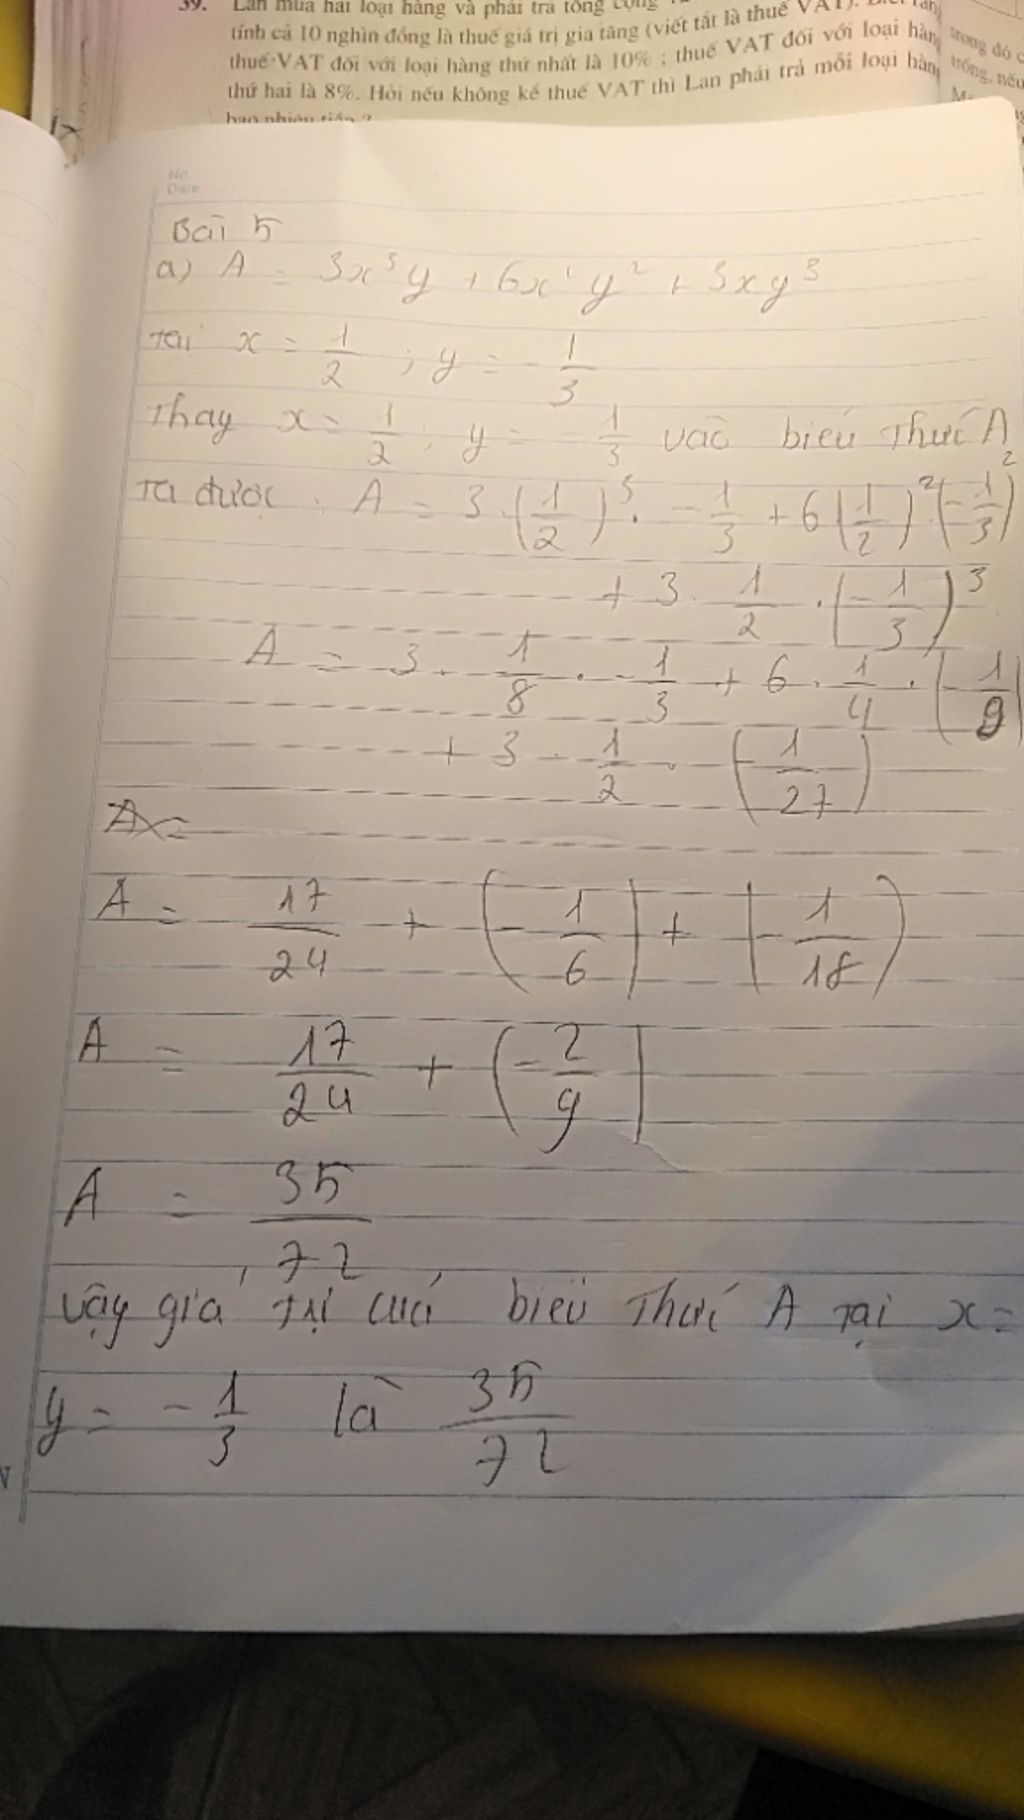 39. Lan mua hai loại hàng và phải trả tổng cộng
tính cả 10 nghìn đồng là thuế giá trị gia tăng (viết tắt là thuế VAT).
thuế VAT đối với loại hàng thứ nhất là 10% ; thuế VAT đối với loại hàn
thứ hai là 8%. Hỏi nếu không kể thuế VAT thì Lan phải trả mỗi loại hàn
bao nhiêu tiền ?
trong đó c
trống, nếu
No.
Date
Bài 5
a) A = 3x³y + 6x¹y² + 3xy³
Tại x = 1/2 ; y = -1/3
Thay x = 1/2 ; y = -1/3 vào biểu thức A
Ta được : A = 3.(1/2)³. -1/3 + 6(1/2)².(-1/3)²
+ 3. 1/2 .(-1/3)³
A = 3. 1/8 . -1/3 + 6. 1/4 . (-1/9)
+ 3. 1/2 . (-1/27)
A =
A = 17/24 + (-1/6) + (-1/18)
A = 17/24 + (-2/9)
A = 35/72
Vậy giá trị của biểu thức A tại x =
y = -1/3 là 35/72